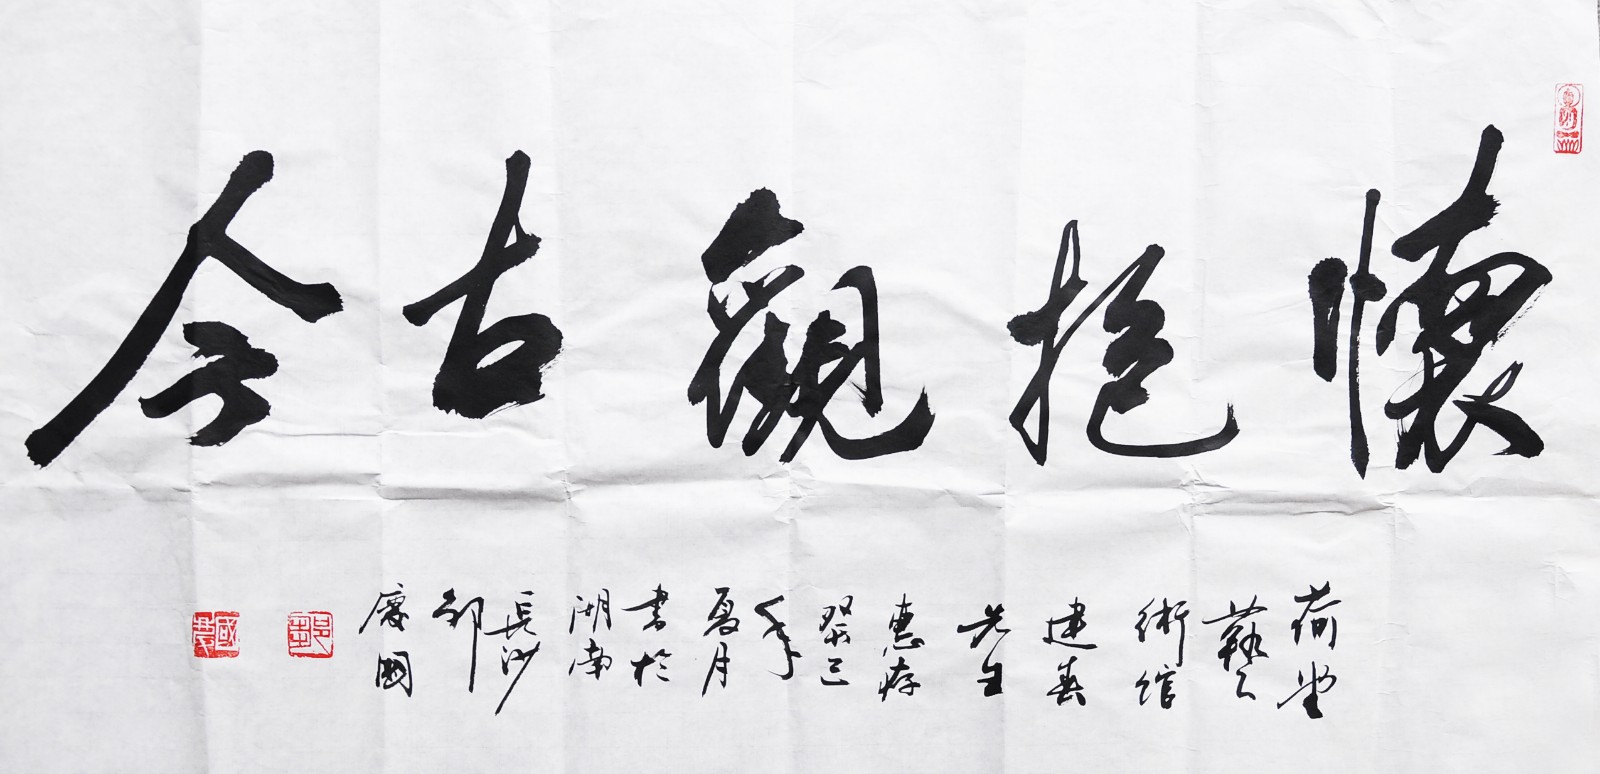 懷抱觀古今
荷堂
藝
術館
建
先生
惠存
癸巳
年
夏月
書於
湖南
長沙
鄒
國